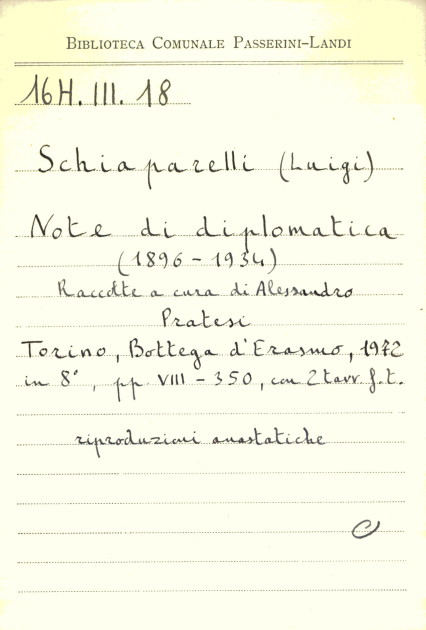 BIBLIOTECA COMUNALE PASSERINI-LANDI
16H. III. 18
Schiaparelli (Luigi)
Note di diplomatica
(1896 - 1934)
Raccolte a cura di Alessandro
Pratesi
Torino, Bottega d'Erasmo, 1972
in 8°, pp. VIII - 350, con 2 tavv. f.t.
riproduzioni anastatiche